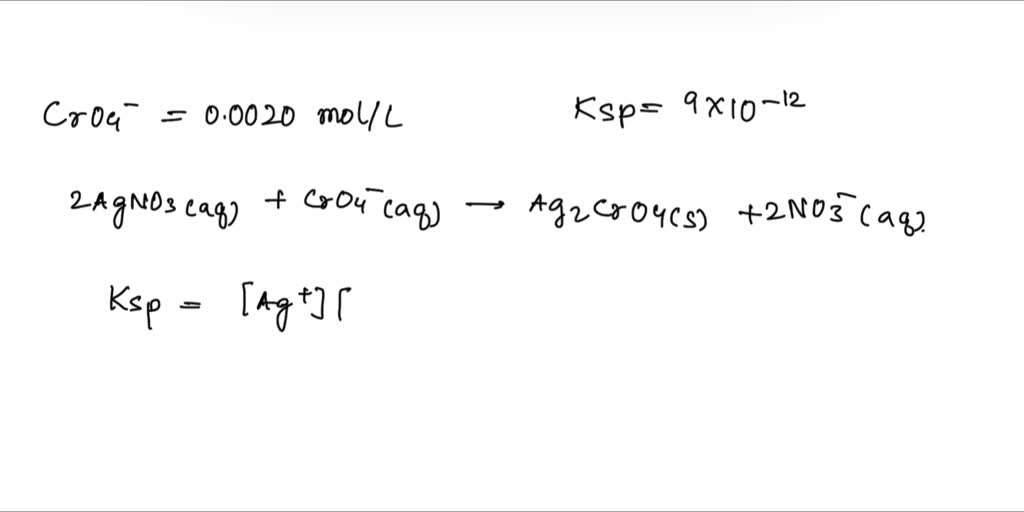 CrO4⁻ = 0.0020 mol/L Ksp= 9×10⁻¹²
2AgNO3(aq) + CrO4⁻(aq) → Ag2CrO4(s) +2NO3⁻(aq).
Ksp = [Ag⁺][